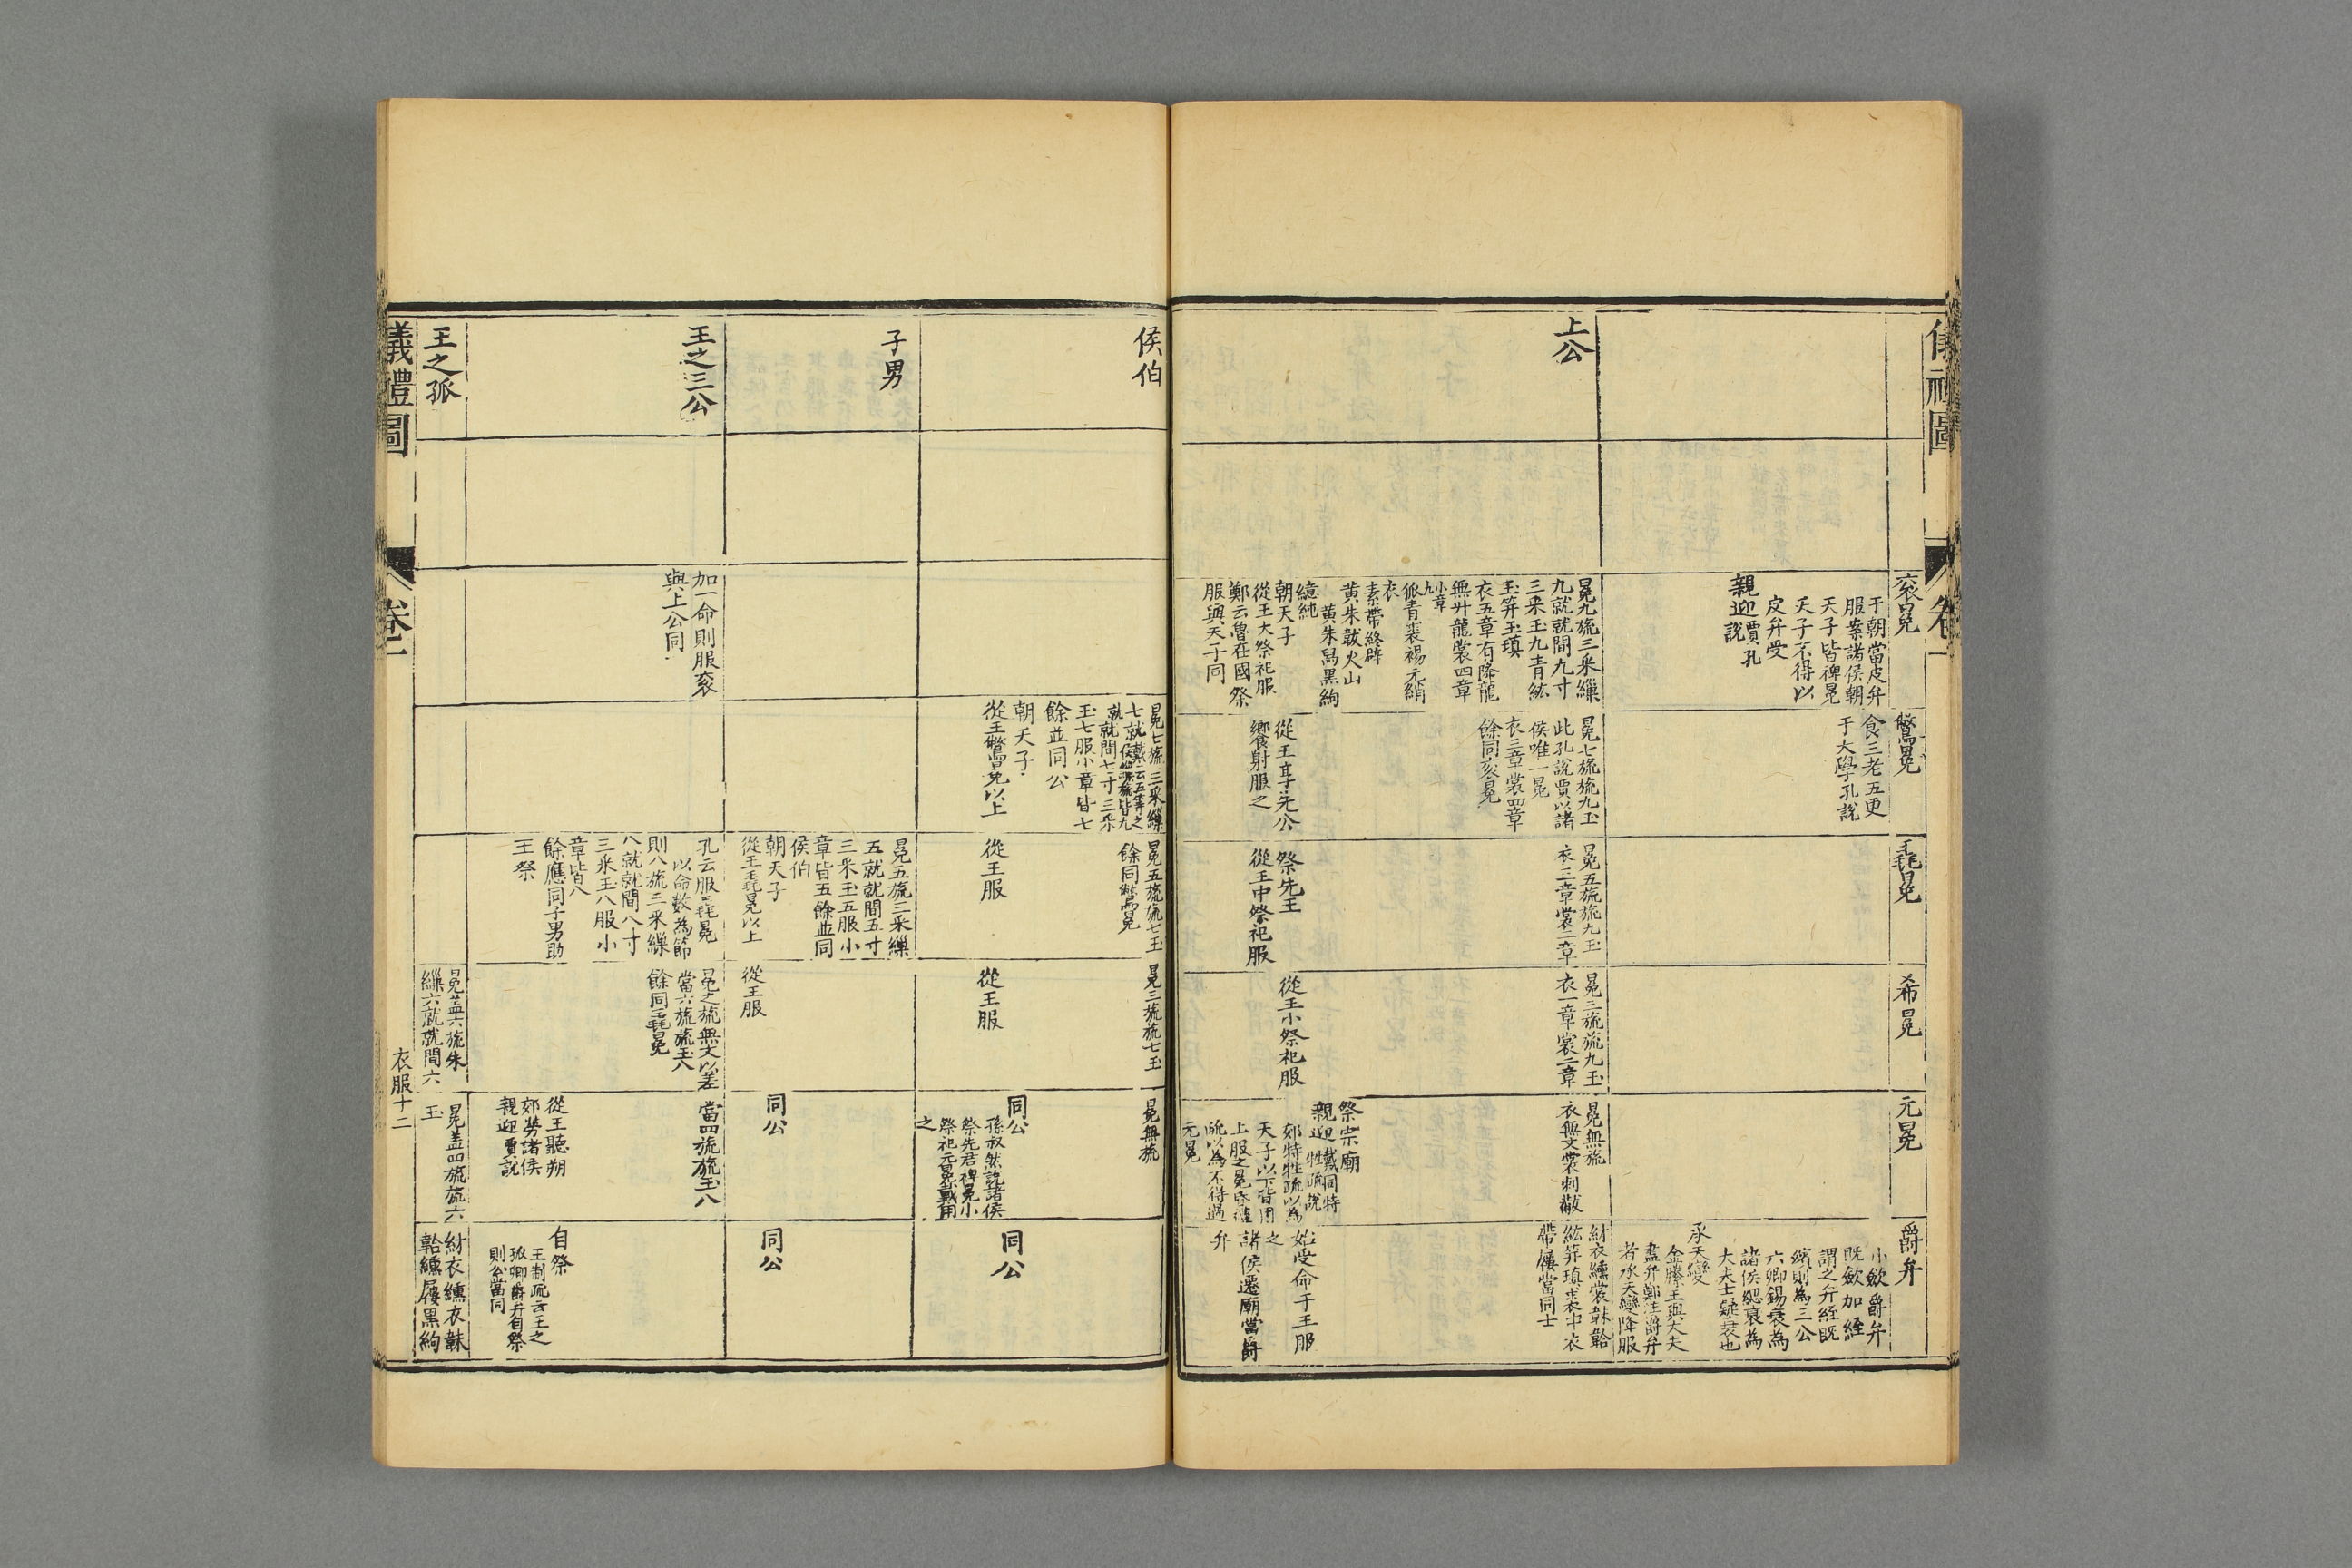 儀禮圖
卷一
袞冕
鷩冕
毳冕
希冕
元冕
爵弁
于朝當皮弁
服案諸侯朝
天子皆裨冕
天子不得以
皮弁受
親迎賈孔
說
食三老五更
于大學孔說
小斂爵弁
既斂加絰
謂之弁絰既
殯則為三公
六卿錫衰為
諸侯緦衰為
大夫士疑衰也
承天變
金縢王與大夫
盡弁鄭注爵弁
者承天變降服
上公
冕九旒三采繅
九就就間九寸
三采玉九青紘
玉笄玉瑱
衣五章有降龍
無升龍裳四章
小章
九
狐青裘裼元綃
衣
素帶終辟
黃朱韍火山
黃朱舄黑絇
繶純
朝天子
從王大祭祀服
鄭云魯在國祭
服與天子同
冕七旒旒九玉
此孔說賈以諸
侯唯一冕
衣三章裳四章
餘同袞冕
從王享先公
饗射服之
冕五旒旒九玉
衣三章裳二章
祭先王
從王中祭祀服
冕三旒旒九玉
衣一章裳二章
從王小祭祀服
冕無旒
衣無文裳刺黻
祭宗廟
親迎戴同特
牲疏說
郊特牲疏以為
天子以下皆用
上服之冕昏禮
疏以為不得過
元冕
紂衣纁裳韎韐
紘笄瑱裘中衣
帶屨當同士
始受命于王服
之
諸侯遷廟當爵
弁
侯伯
冕七旒三采繅
七就戴云五等之
侯冕旒皆九
就就間七寸三采
玉七服小章皆七
餘並同公
朝天子
從王鷩冕以上
冕五旒旒七玉
餘同鷩冕
從王服
冕三旒旒七玉
從王服
冕無旒
同公
孫叔然說諸侯
祭先君裨冕小
祭祀元冕戴用
之
同公
子男
冕五旒三采繅
五就就間五寸
三采玉五服小
章皆五餘並同
侯伯
朝天子
從王毳冕以上
從王服
同公
同公
王之三公
加一命則服袞
與上公同
孔云服毳冕
以命數為節
則八旒三采繅
八就就間八寸
三采玉八服小
章皆八
餘應同子男助
王祭
冕之旒無文以差
當六旒旒玉八
餘同毳冕
當四旒旒玉八
從王聽朔
郊勞諸侯
親迎賈說
自祭
王制疏云王之
孤卿爵弁自祭
則公當同
王之孤
冕蓋六旒朱
繅六就就間六
冕蓋四旒旒六
玉
紂衣纁衣韎
韐纁屨黑絇
儀禮圖
卷一
衣服十二